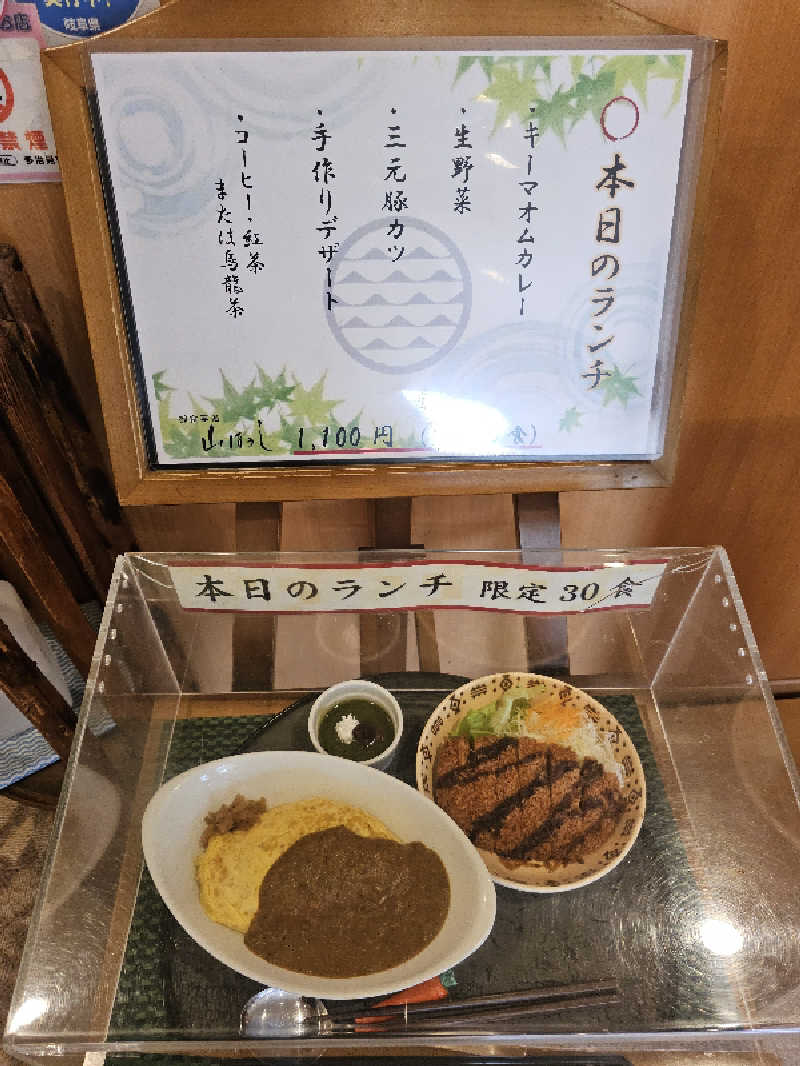 岐阜県
○本日のランチ
・キーマオムカレー
・生野菜
・三元豚カツ
・手作りデザート
・コーヒー・紅茶
または烏龍茶
1,100円
食)
本日のランチ 限定30食